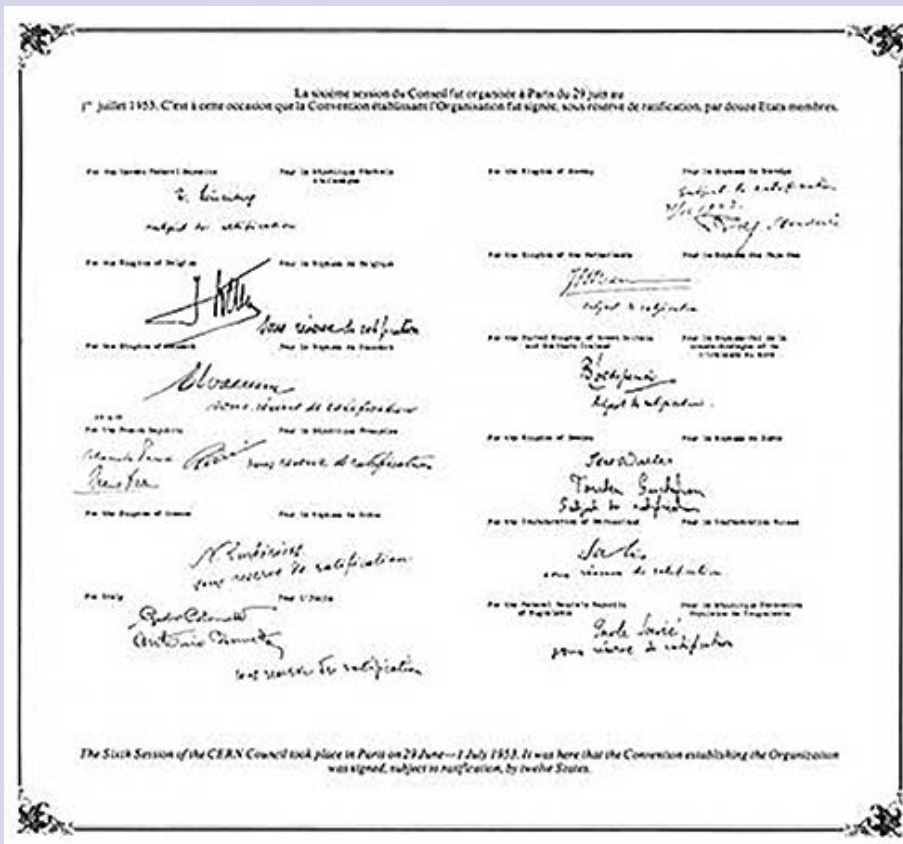 La sixième session du Conseil fut organisée à Paris du 29 juin au
1er juillet 1953. C'est à cette occasion que la Convention établissant l'Organisation fut signée, sous réserve de ratification, par douze Etats membres.
For the German Federal Republic
Pour la République Fédérale
subject to ratification
For the Kingdom of Belgium
Pour le Royaume de Belgique
sous réserve de ratification
For the Kingdom of Denmark
Pour le Royaume de Danemark
sous réserve de ratification
For the French Republic
Pour la République Française
sous réserve de ratification
For the Kingdom of Greece
Pour le Royaume de Grèce
sous reserve de ratification
For Italy
Pour l'Italie
sous reserve de ratification
For the Kingdom of Norway
Pour le Royaume de Norvège
Subject to ratification
For the Kingdom of the Netherlands
Pour le Royaume des Pays-Bas
subject to ratification
For the United Kingdom of Great Britain
and Northern Ireland
Pour le Royaume-Uni de la
Grande-Bretagne et de
l'Irlande du Nord
subject to ratification.
For the Kingdom of Sweden
Pour le Royaume de Suède
Torsten Gustafson
Subject to ratification
For the Confederation of Switzerland
Pour la Confédération Suisse
sous réserve de ratification
For the Federal People's Republic
of Yugoslavia
Pour la République Fédérative
Populaire de Yougoslavie
Pavle Savić
sous réserve de ratification
The Sixth Session of the CERN Council took place in Paris on 29 June—1 July 1953. It was here that the Convention establishing the Organization
was signed, subject to ratification, by twelve States.